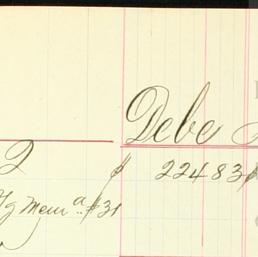 Debe
2 $ 22483
mem a. #31